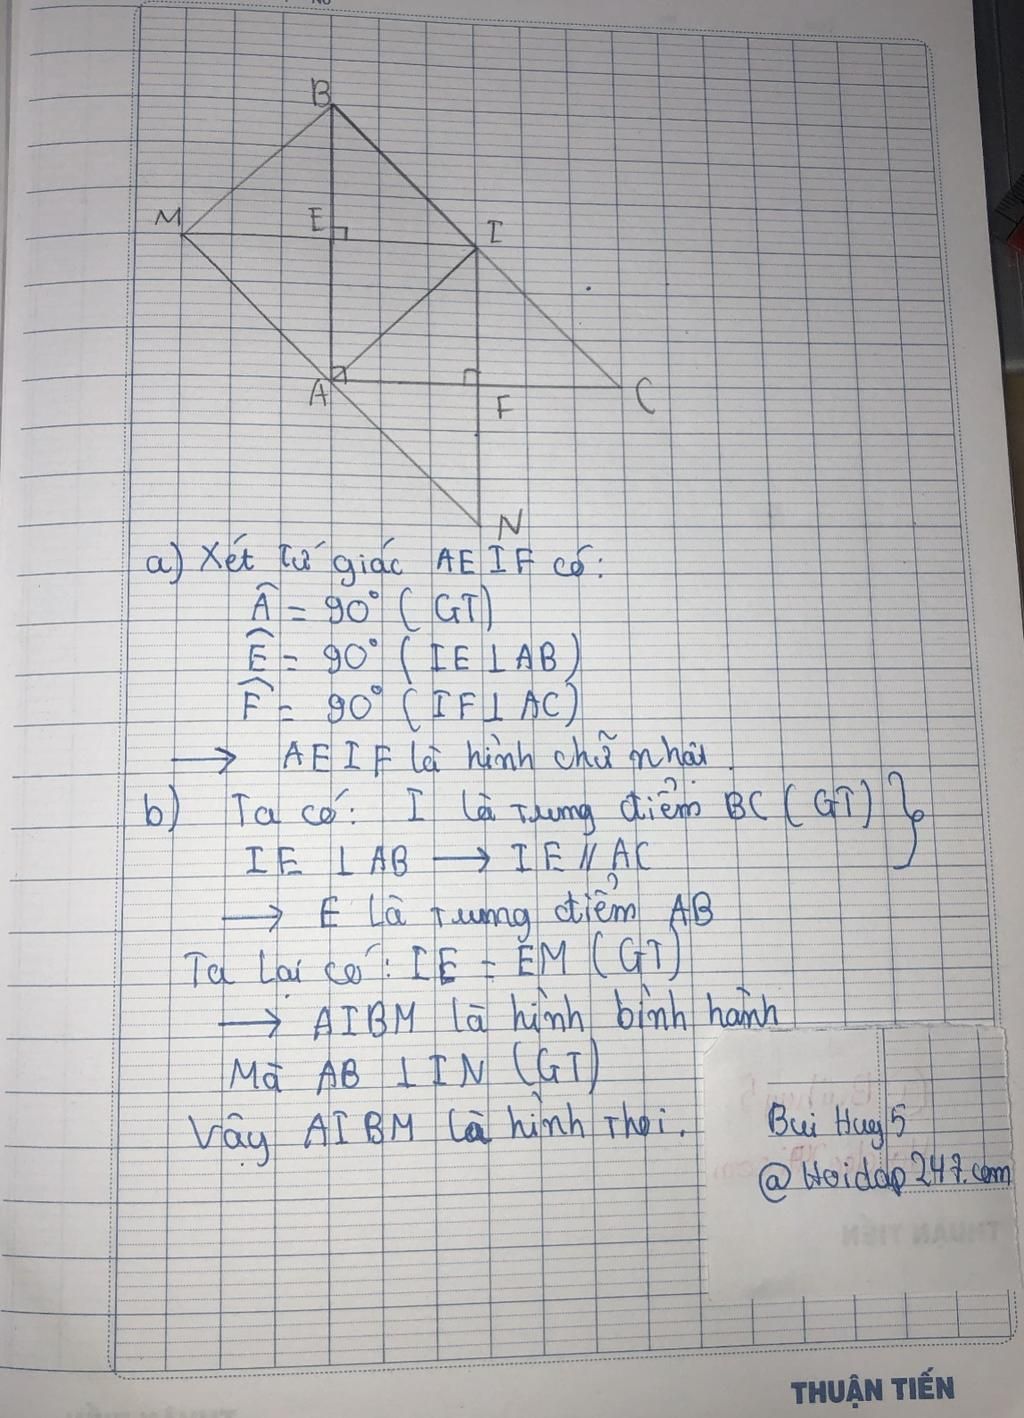 B
M
E
I
A
F
C
N
a) Xét tứ giác AEIF có:
Â = 90° (GT)
Ê = 90° (IE⊥AB)
F̂ = 90° (IF⊥AC)
→ AEIF là hình chữ nhật.
b) Ta có: I là trung điểm BC (GT) }
IE ⊥ AB → IE // AC
→ E là trung điểm AB
Ta lại có: IE = EM (GT)
→ AIBM là hình bình hành
Mà AB ⊥ IN (GT)
Vậy AIBM là hình thoi.
Bui Huy 5
@Hoidap247.com
THUẬN TIẾN